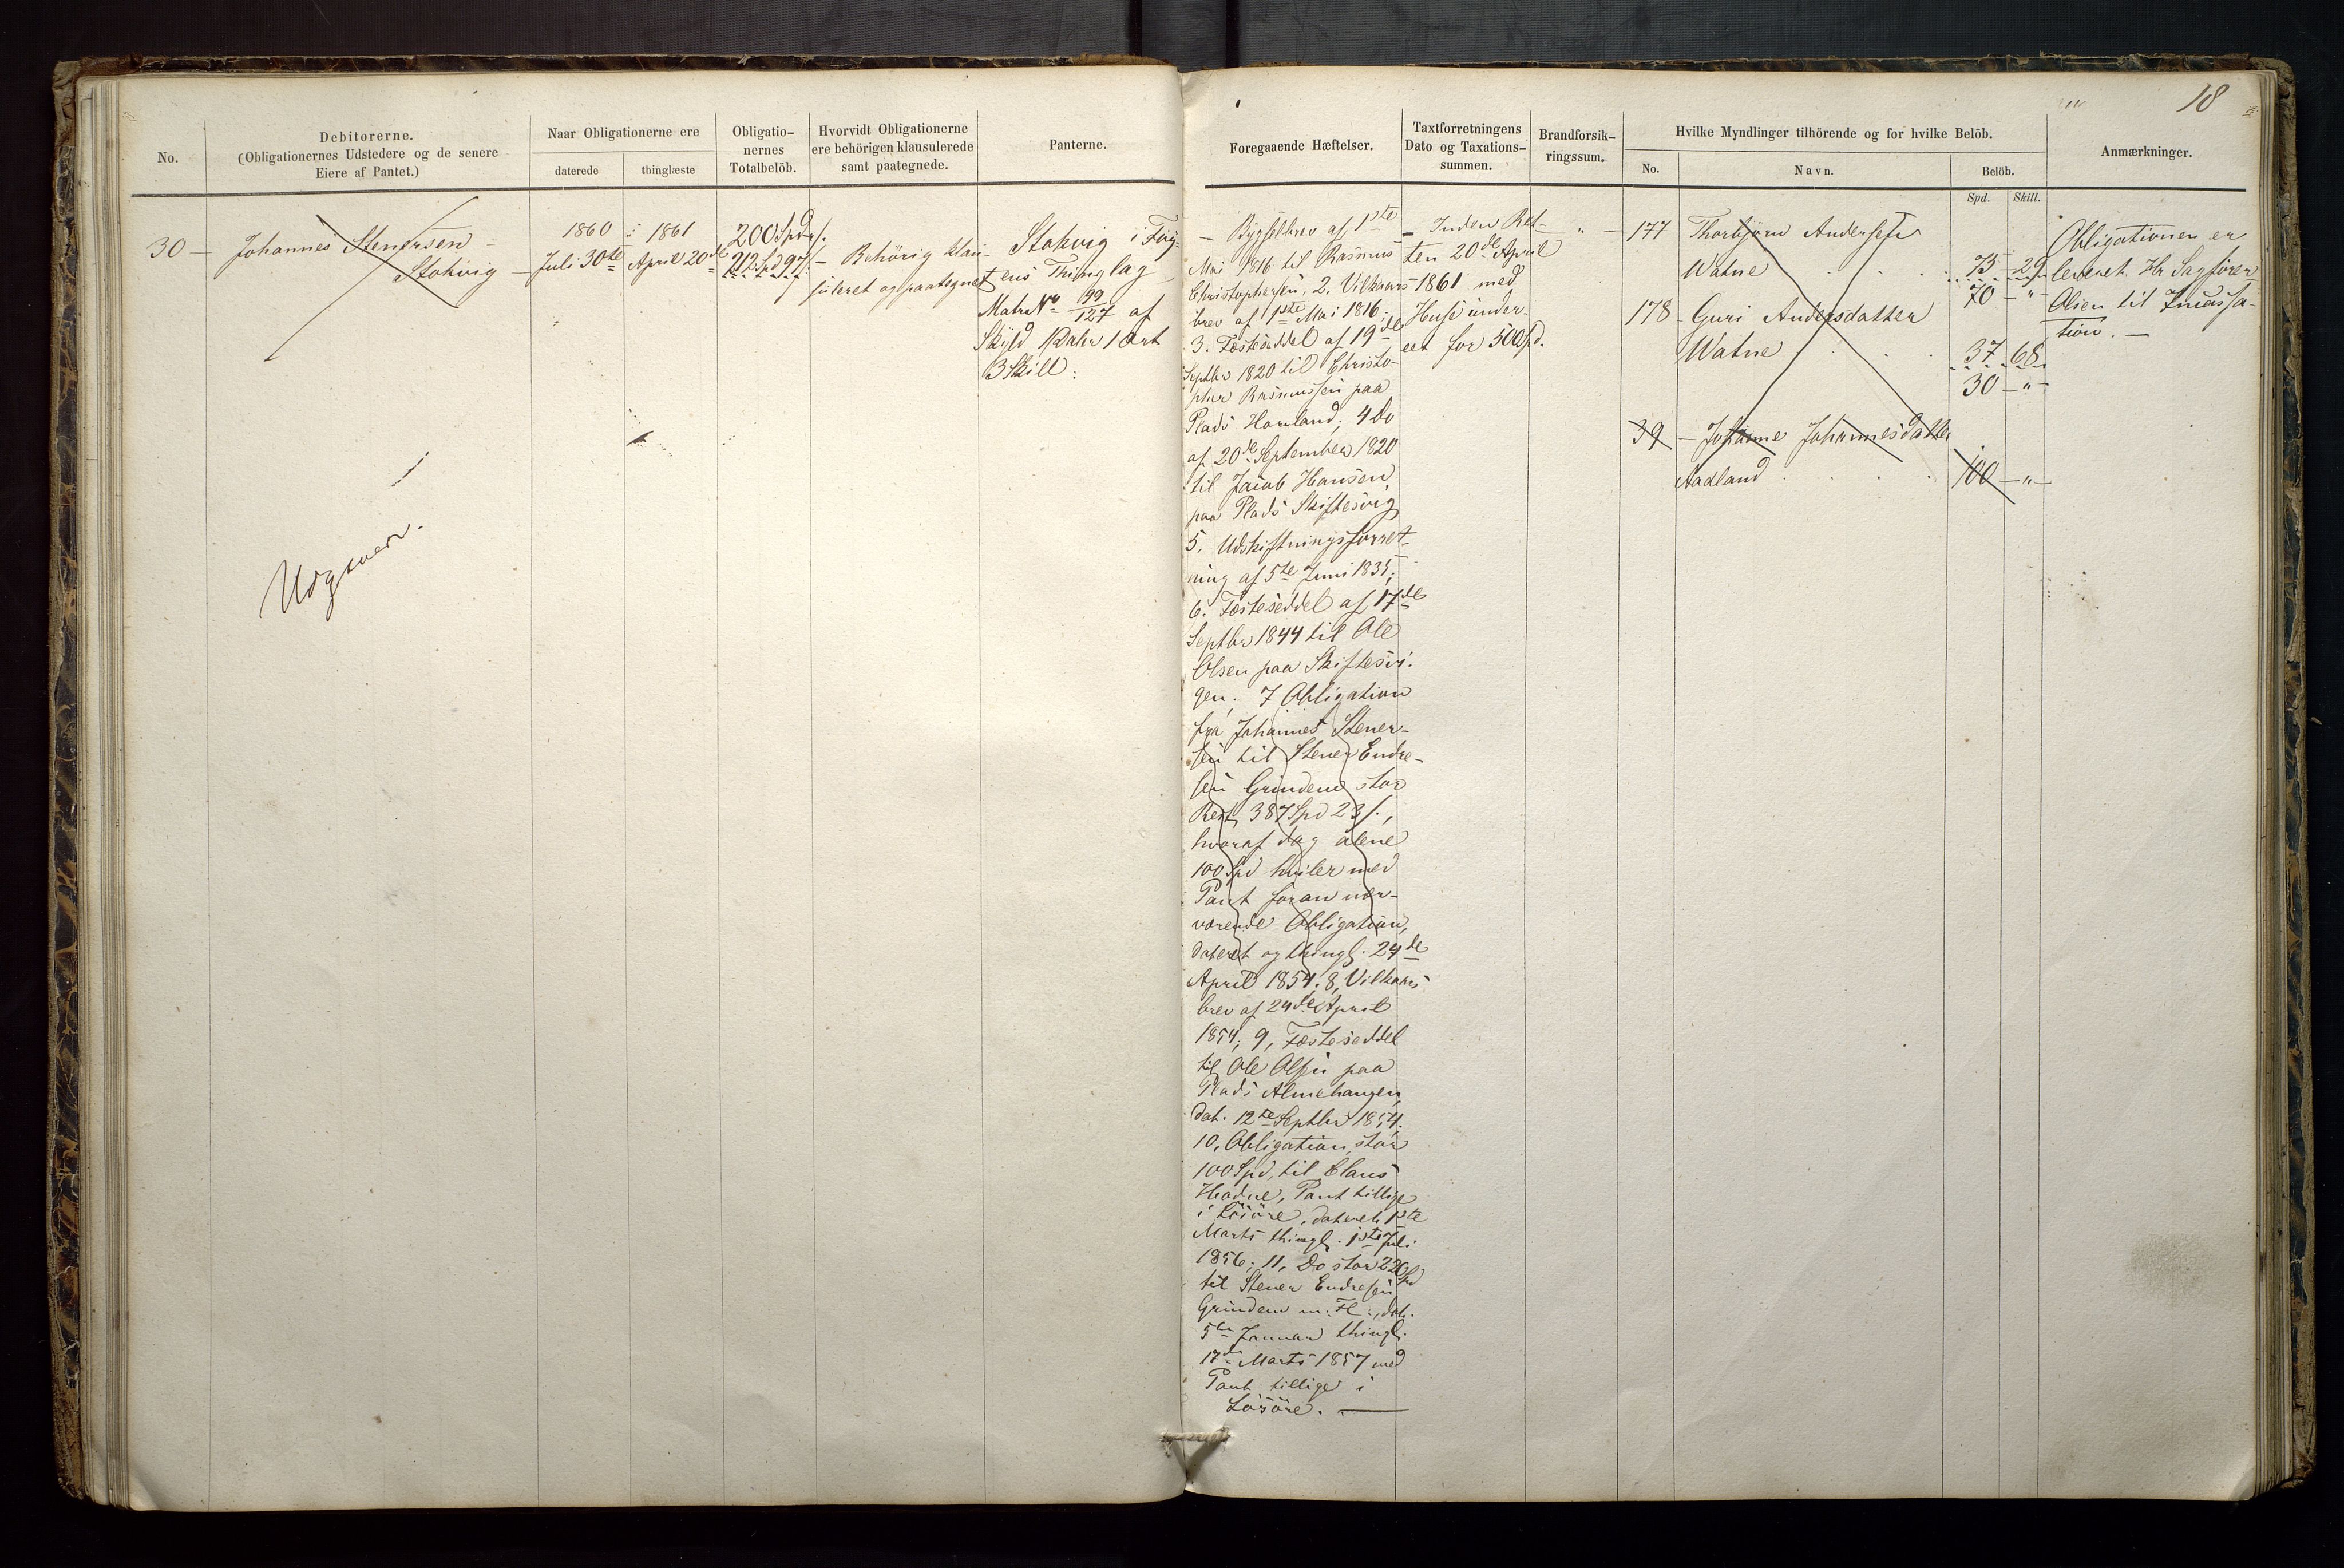 18
No.
Debitorerne.
(Obligationernes Udstedere og de senere
Eiere af Pantet.)
Naar Obligationerne ere
daterede
thinglæste
Obligatio-
nernes
Totalbelöb.
Hvorvidt Obligationerne
ere behörigen klausulerede
samt paategnede.
Panterne.
30 — Johannes Stenersen
Stokvig —
1860
Juli 30te
1861
April 20de
200 Spd
212 Spd 97
— Behörig klau-
suleret og paategnet
Stokvig i
ens Thinglag
Matr No 99/127 af
Skyld 1 Ort
3 Skill:
Udgaaer.
Foregaaende Hæftelser.
Taxtforretningens
Dato og Taxations-
summen.
Brandforsik-
ringssum.
Hvilke Myndlinger tilhörende og for hvilke Belöb.
No.
Navn.
Belöb.
Spd.
Skill.
Anmærkninger.
— Bygselbrev af 1ste
Mai 1816 til Rasmus
Christophersen, 2. Vilkaars-
brev af 1ste Mai 1816.
3. Fæsteseddel af 19de
Septbr 1820 til Christo-
pher Rasmussen paa
Plads Havland; 4 Do
af 20de September 1820
til Jacob Hansen
paa Plads Skiftesvig
5. Udskiftningsforret-
ning af 5te Juni 1835;
6. Fæsteseddel af 17de
Septbr 1844 til Ole
Olsen paa Skiftesvi-
gen; 7 Obligation
fra Johannes Stener-
sen til Stener Endre-
sen Grindem stor
Rest 387 Spd 23 s.,
hvoraf dog alene
100 Spd hviler med
Pant foran nær-
værende Obligation,
dateret og thingl. 24de
April 1854. 8, Vilkaars
brev af 24de April
1854; 9, Fæsteseddel
til Ole Olsen paa
Plads Almehaugen,
dat. 12te Septbr 1854.
10, Obligation, stor
100 Spd, til Claus
Hadne, Pant tillige
i Lösöre, dateret 1ste
Marts thingl. 1ste Juli
1856; 11, Do stor 220 Spd
til Stener Endresen
Grindem m: Fl:, dat.
5te Januar thingl.
17de Marts 1857 med
Pant tillige i
Lösöre. —
— Inden Ret-
ten 20de April
1861 med
Huse vurder-
et for 500 Spd.
— " —
177 Thorbjörn Andersen
Watne . . . 75 29
70 — " —
178 — Guri Andersdatter
Watne . . . 37. 68.
30 — " —
39 — Johanne Johannesdatter
Aadland . . . 100 — " —
Obligationen er
leveret Hr Sagförer
Olsen til Incassa-
tion. —